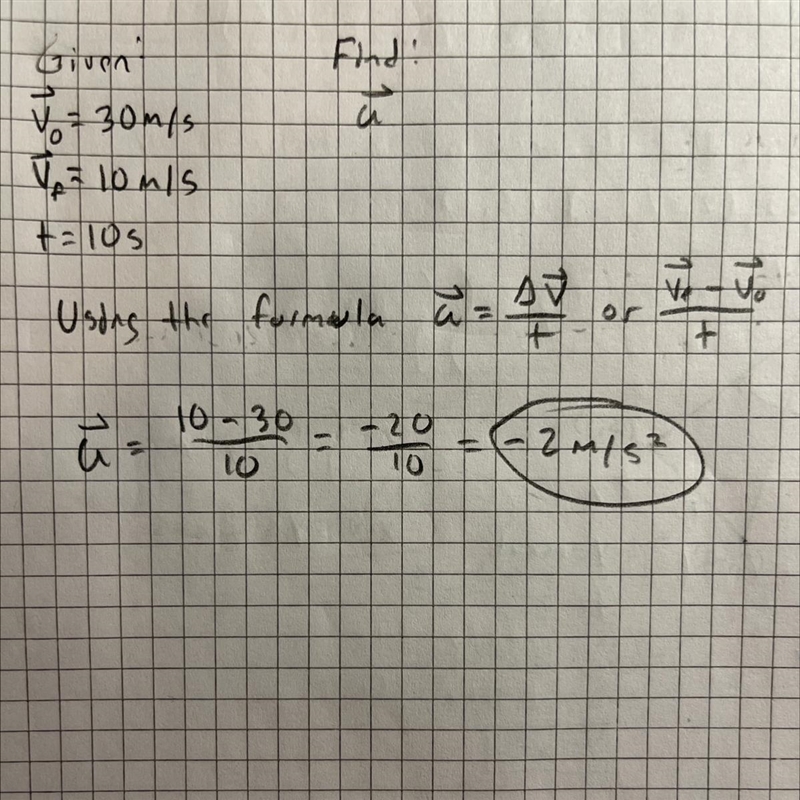 Given: Find:
V⃗₀ = 30 m/s a⃗
V⃗f = 10 m/s
t = 10 s
Using the formula a⃗ = ΔV⃗/t or (V⃗f − V⃗₀)/t
a⃗ = (10 − 30)/10 = −20/10 = −2 m/s²